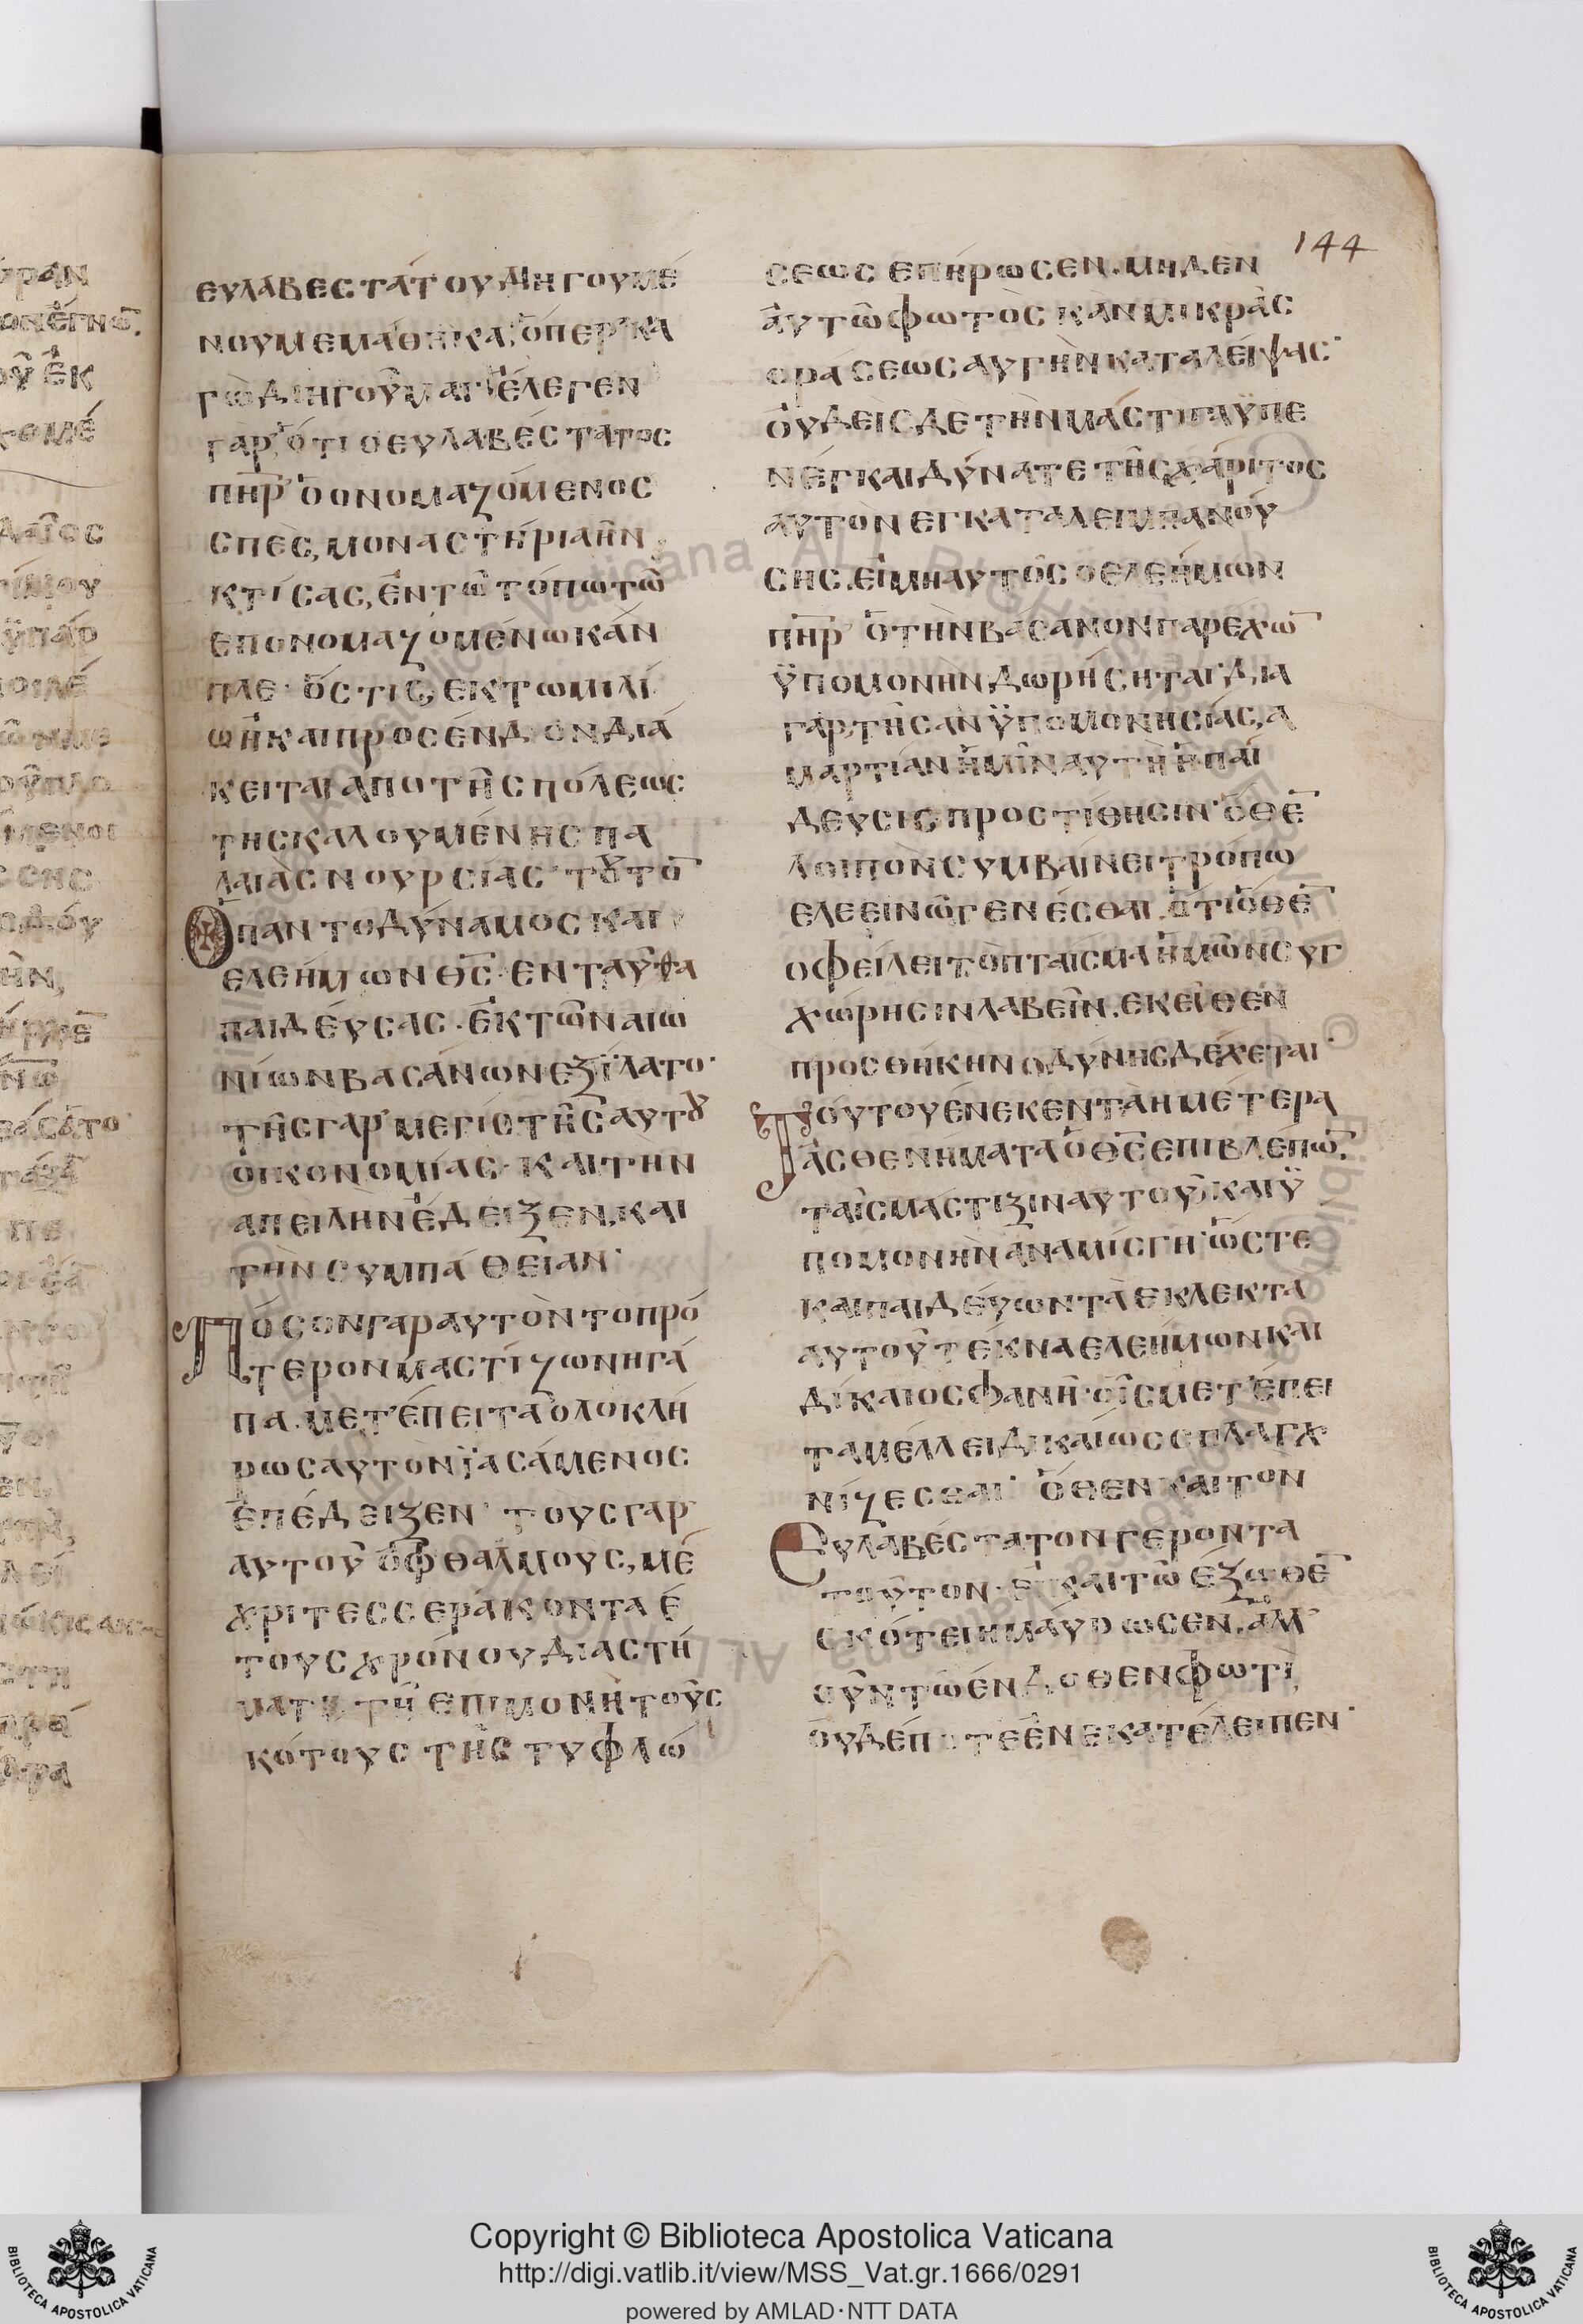 144
ευλαβεστάτου διηγουμέ
νου μεμάθηκα, ὅπερ κα
γὼ διηγοῦμαι· ἔλεγεν
γὰρ, ὅτι ο ευλαβέστατος
πηρ ὁ ονομαζόμενος
σπὲς, μοναστήρια ἦν
κτίσας, ἐν τῶ τόπω τῶ
επονομαζομένω κάν
πλε· ὅς τις, εκτω μιλί
ω ἢ και προς ένδον διά
κειται απο τῆς πόλεως
της καλουμένης πα
λαιὰς νουρσίας· τοῦτο̄
Ὁ παντοδύναμος και
ελεήμων θς· ενταῦθα
παιδεύσας· ἐκ τῶν αιω
νίων βασάνων εξϊλατο·
τῆς γαρ μεγίστῆς αυτου
ὀικονομίας· και την
απειλὴν ἔδειξεν, και
τὴν συμπάθειαν·
Πόσον γαρ αυτὸν το πρό
τερον μαστίζων ηγά
πα. μετ'έπειτα ὁλοκλή
ρως αυτον ϊασάμενος
ἐπέδειξεν· τους γαρ
αυτοῦ ὀφθαλμους, μέ
χρι τεσσεράκοντα έ
τους χρόνου διαστή
ματι, τῆ επιμονὴ τοῦ σ
κότους τῆς τυφλώ
σεως επήρωσεν. μηδεν
ἀυτῶ φωτὸς κὰν μικρὰς
οράσεως αυγὴν καταλείψας·
ὀυδεὶς δε τὴν μάστιγα ϋπε
νέγκαι δύνατε τῆς χάριτος
αυτὸν εγκαταλειμπανού
σης. εἰ μη αυτὸς ο ελεήμων
πηρ ὁ τὴν βάσανον παρέχω̄
ϋπομονὴν δωρήσηται· δια
γαρ τῆς ανϋπομονησίας, α
μαρτίαν ἡμῖν αυτὴ ἡ παί
δευσις προστίθησιν· ὅθε̄
λοιπὸν συμβαίνει τρόπω
ελεεινῶ γενέσθαι. ὅτι ὅθε̄
οφείλει τὸ πταίσμα ἡμῶν συγ
χώρησιν λαβεῖν. εκείθεν
προσθήκην οδύνης δέχεται·
Τούτου ένεκεν τὰ ημέτερα
ἀσθενήματα ὁ θς επιβλέπω̄.
ταῖς μάστιξιν αυτοῦ, και ϋ
πομονὴν αναμίσγη· ὥστε
και παιδέυων τὰ εκλεκτὰ
αυτοῦ τέκνα ελεήμων και
δίκαιος φανῆ· οἷς μετ'έπει
τα μέλλει δικαίως σπλαγχ
νίζεσθαι· ὅθεν και τον
Ευλαβέστατον γεροντα
τοῦτον· ει και τῶ έξωθε̄
σκότει ημάυρωσεν. ἀλλ'
οῦν τῶ ένδοθεν φωτὶ,
ὀυδέποτε ἐνεκατέλειπεν·
Copyright © Biblioteca Apostolica Vaticana
http://digi.vatlib.it/view/MSS_Vat.gr.1666/0291
powered by AMLAD·NTT DATA
BIBLIOTECA APOSTOLICA VATICANA
BIBLIOTECA APOSTOLICA VATICANA